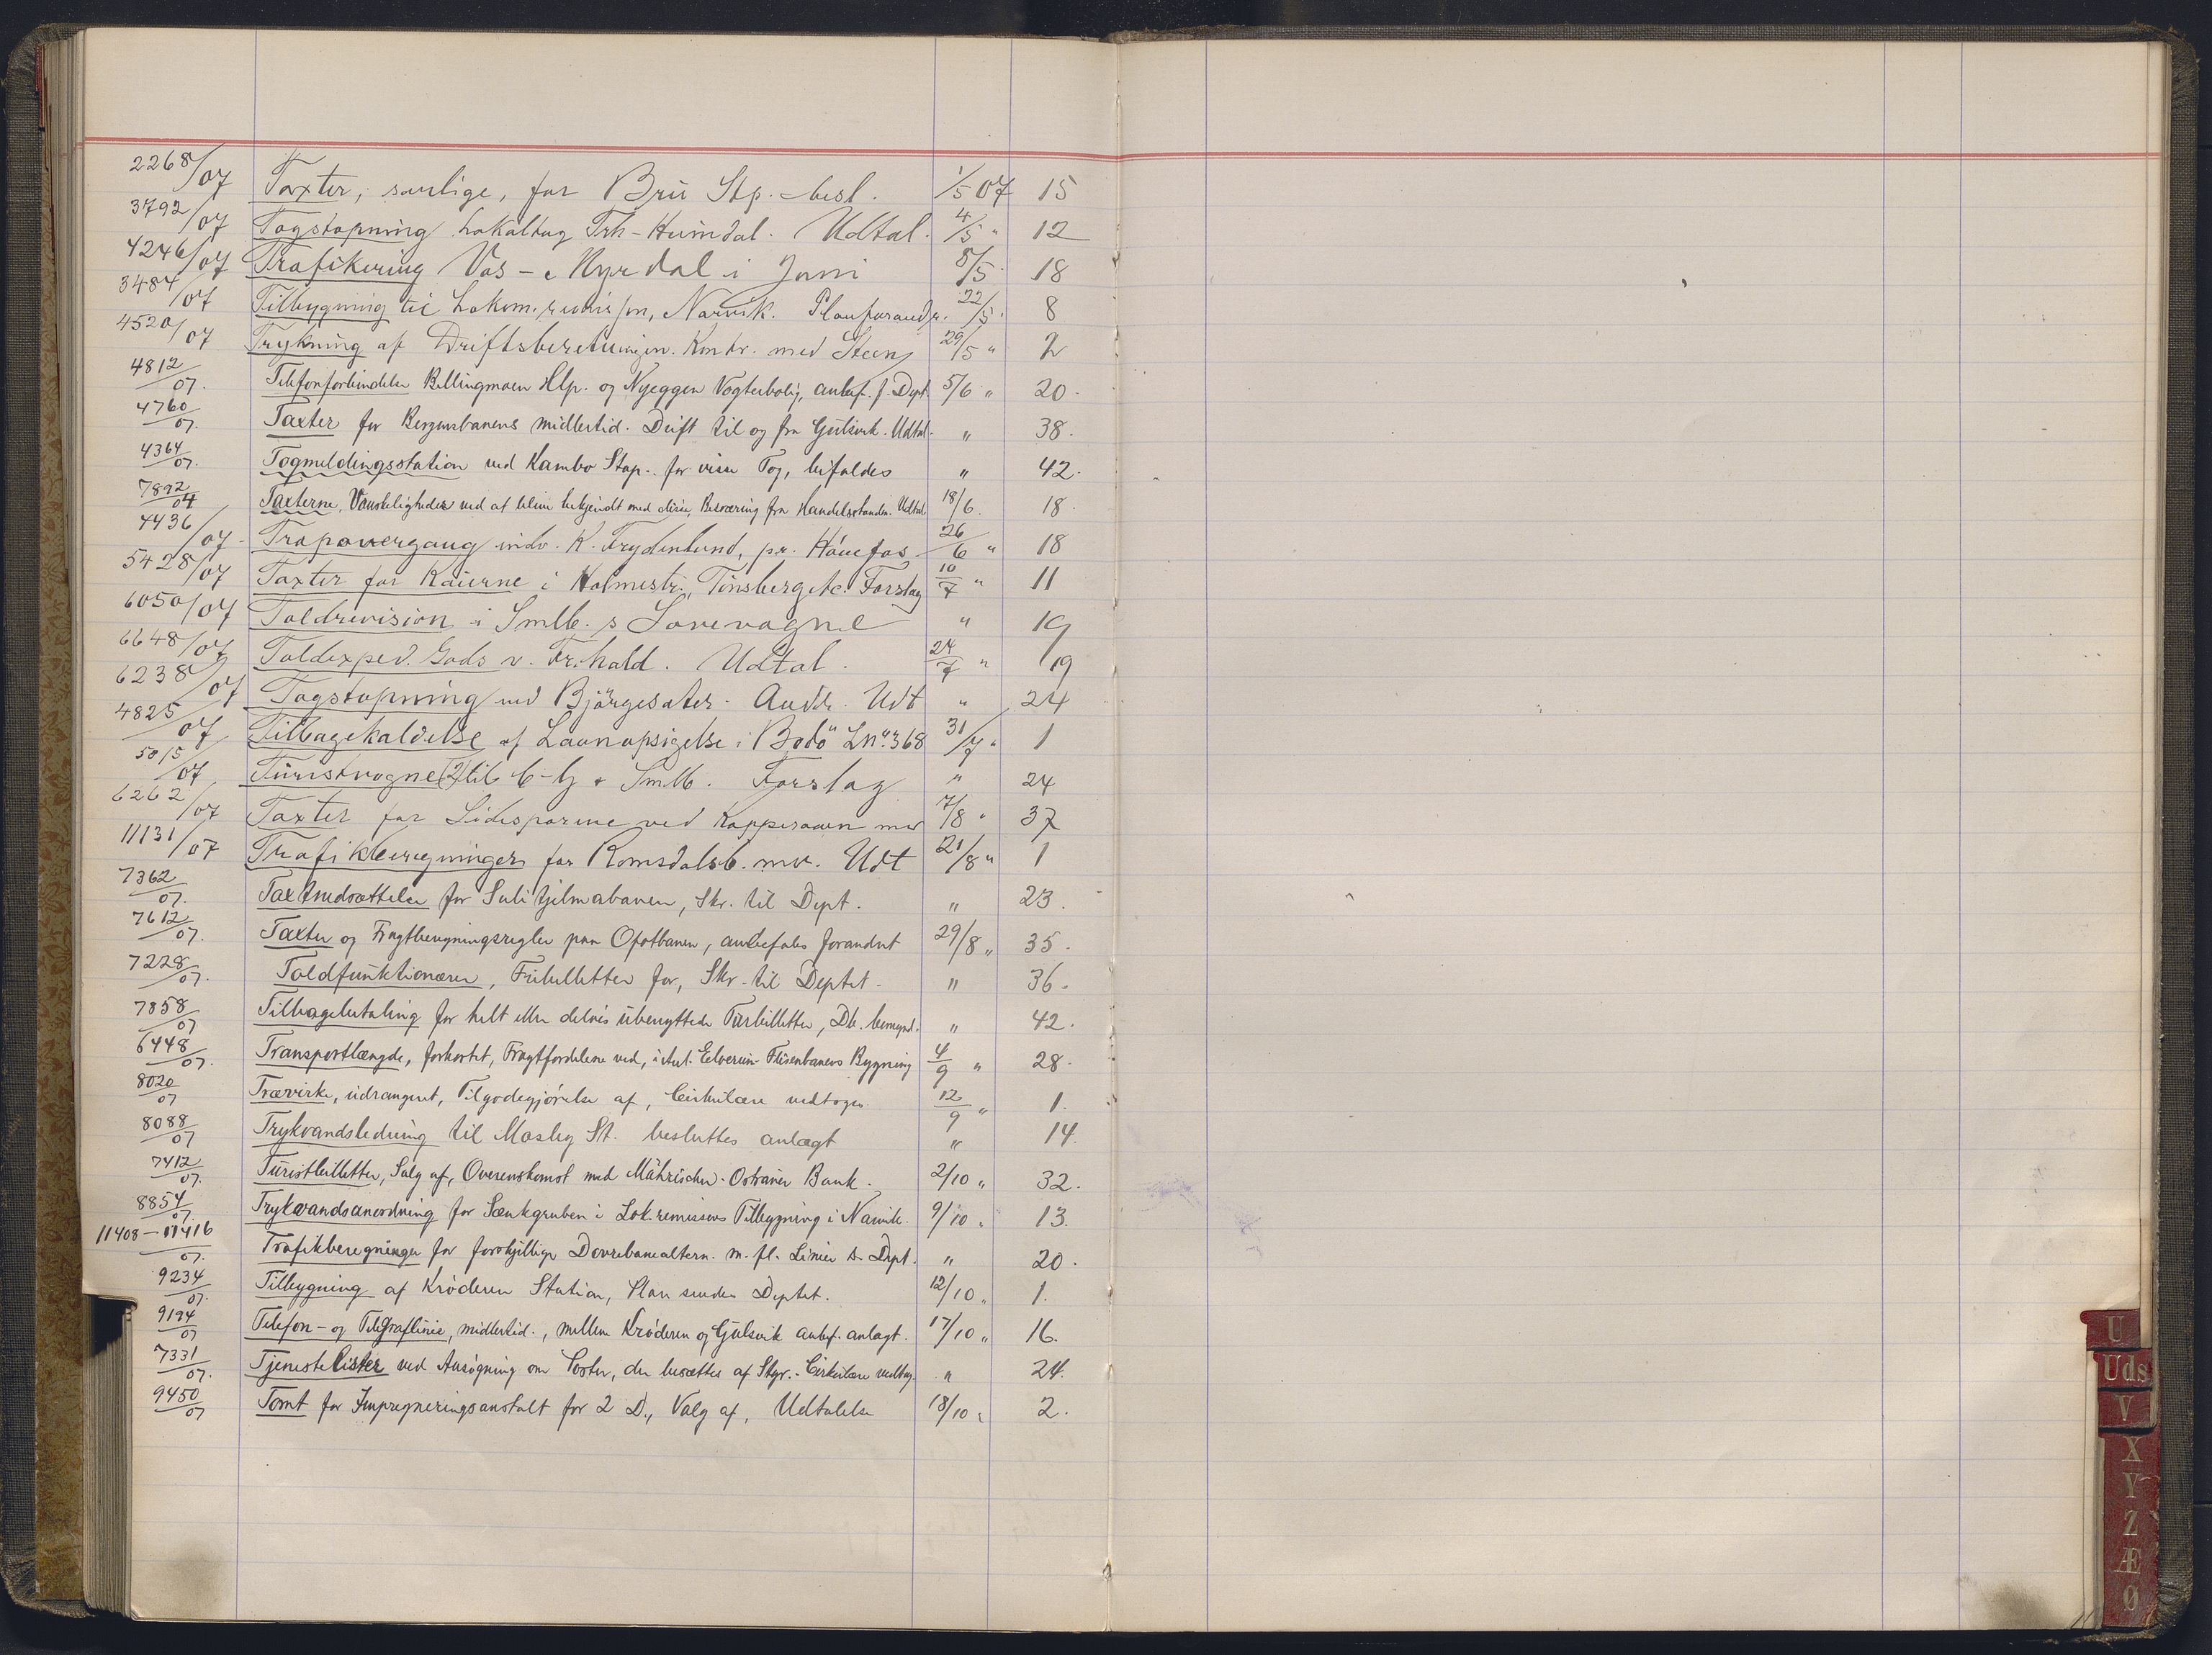 2268/07 Taxter, særlige, for Bru Stp. - besl. 1/5 07 15
3792/07 Togstopning Lokaltog Trh - Heimdal. Udtal. 4/5 " 12
4246/07 Trafikering Vos - Myrdal i Juni 8/5 18
3484/07 Tilbygning til Lokom. , Narvik. Planforandr. 22/5 8
4520/07 Trykning af Driftsberetningen. Kontr. med Steen 29/5 " 2
4812/07. Telefonforbindelse Billingmoen Hlp. og Nyeggen Vogterbolig, anbef. f. Dept. 5/6 " 20.
4760/07. Taxter for Bergensbanens midlertid. Drift til og fra Gulsvik. Udtal. " 38.
4364/07. Togmeldingsstation ved Kambo Stop. for visse Tog, bifaldes " 42.
7892/04 Taxterne, Vanskeligheder ved at blive bekjendt med disse, Besværing fra Handelsstanden. Udtal. 18/6. 18.
4436/07 - Trapovergang indv. K. Frydenlund, pr. Hönefos 26/6 " 18
5428/07 Taxter for Kaierne i Holmestr., Tönsberg etc. Forslag 10/7 " 11
6050/07 Toldrevision i Smlb.s Sovevogne " 19
6648/07 Toldexped. Gods v. Fr.hald. Udtal. 24/7 " 19
6238/07 Togstopning ved Björgesæter. Andr. Udt " 24
4825/07 Tilbagekaldelse af Laanopsigelse i Bodö Ln. 368 31/7 " 1
5015/07 Turistvogne (2) til C-b & Smlb. Forslag " 24
6262/07 Taxter for Sidesporene ved Kopperaaen m.v. 7/8 " 37
11131/07 Trafikberegninger for Romsdalsb. m.v. Udt 21/8 " 1
7362/07. Taxtnedsættelse for Sulitjelmabanen, Skr. til Dept. " 23.
7612/07. Taxter og Fragtberegningsregler paa Ofotbanen, anbefales forandret 29/8 " 35.
7228/07. Toldfunktionærer, Fribilletter for, Skr. til Deptet. " 36.
7858/07 Tilbagebetaling for helt eller delvis ubenyttede Turbilletter, Db. bemynd. " 42.
6448/07. Transportlængde, forkortet, Fragtfordelene ved, i Anl. Elverum-Flisenbanens Bygning 4/9 " 28.
8020/07 Trævirke, udrangeret, Tilgodegjörelse af, Cirkulære vedtages 12/9 " 1.
8088/07 Trykvandsledning til Mosby St. besluttes anlægt " 14.
7412/07. Turistbilletter, Salg af, Overenskomst med Mährischer-Ostrauer Bank. 2/10 " 32.
8854/07 Trykvandsanordning for Sænkgruben i Lok.remissens Tilbygning i Narvik. 9/10 " 13.
11408-11416/07. Trafikberegninger for forskjellige Dovrebanealtern. m. fl. Linier s. Dept. " 20.
9234/07. Tilbygning af Kröderen Station, Plan sendes Deptet. 12/10 " 1.
9194/07 Telefon- og Telegraflinie, midlertid., mellem Kröderen og Gulsvik anbef. anlagt. 17/10 " 16.
7331/07. Tjenestelister ved Ansögning om Poster, der besættes af Styr. - Cirkulære vedtag. " 24.
9450/07 Tomt for Impregneringsanstalt for 2 D., Valg af, Udtalelse 18/10 " 2.
U
Uds
V
X
Y
Z
Æ
Ø